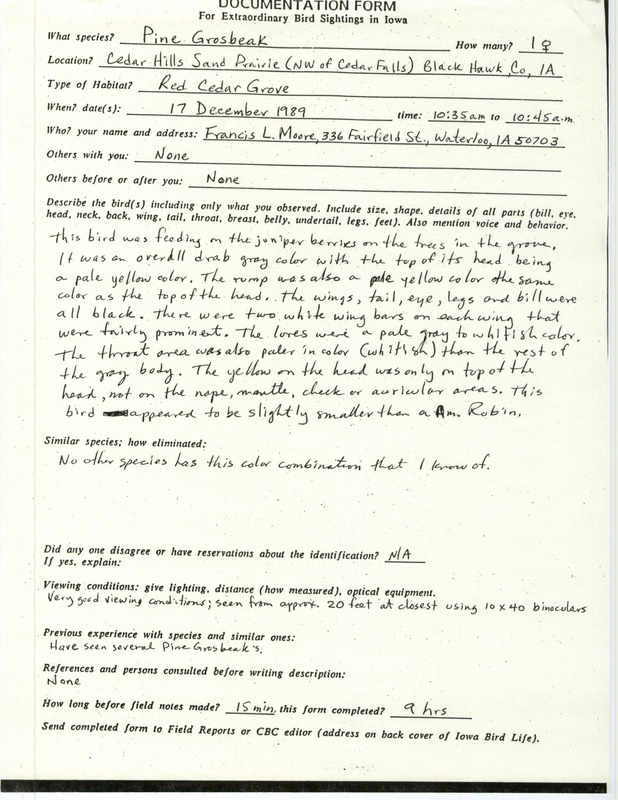 DOCUMENTATION FORM
For Extraordinary Bird Sightings in Iowa
What species? Pine Grosbeak How many? 1♀
Location? Cedar Hills Sand Prairie (NW of Cedar Falls) Black Hawk Co, IA
Type of Habitat? Red Cedar Grove
When? date(s): 17 December 1989 time: 10:35am to 10:45a.m.
Who? your name and address: Francis L. Moore, 336 Fairfield St., Waterloo, IA 50703
Others with you: None
Others before or after you: None
Describe the bird(s) including only what you observed. Include size, shape, details of all parts (bill, eye,
head, neck, back, wing, tail, throat, breast, belly, undertail, legs, feet). Also mention voice and behavior.
This bird was feeding on the juniper berries on the trees in the grove.
It was an overall drab gray color with the top of its head being
a pale yellow color. The rump was also a pale yellow color the same
color as the top of the head. The wings, tail, eye, legs and bill were
all black. There were two white wing bars on each wing that
were fairly prominent. The lores were a pale gray to whitish color.
The throat area was also paler in color (whitish) than the rest of
the gray body. The yellow on the head was only on top of the
head, not on the nape, mantle, cheek or auricular areas. This
bird appeared to be slightly smaller than a Am. Robin.
Similar species; how eliminated:
No other species has this color combination that I know of.
Did any one disagree or have reservations about the identification? N/A
If yes, explain:
Viewing conditions: give lighting, distance (how measured), optical equipment.
Very good viewing conditions; seen from approx. 20 feet at closest using 10 x 40 binoculars
Previous experience with species and similar ones:
Have seen several Pine Grosbeak's.
References and persons consulted before writing description:
None
How long before field notes made? 15 min. this form completed? 9 hrs
Send completed form to Field Reports or CBC editor (address on back cover of Iowa Bird Life).